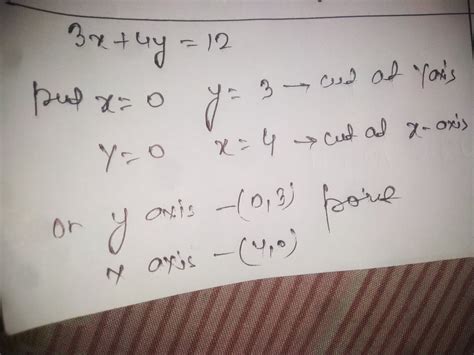 3x+4y=12
put x=0 y=3 → cut at Y axis
y=0 x=4 → cut at x-axis
on y axis -(0,3)
x axis -(4,0)